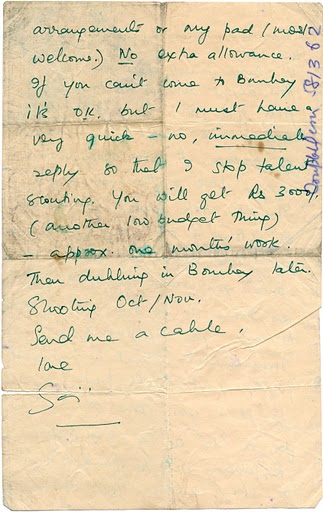 arrangements or my pad (most
welcome.) No extra allowance.
If you can't come to Bombay
it's OK. but I must have a
very quick – no, immediate
reply so that I stop talent
scouting. You will get Rs 3000/.
(another low budget thing)
– approx. one month's work.
Then dubbing in Bombay later.
Shooting Oct/Nov.
Send me a cable.
love